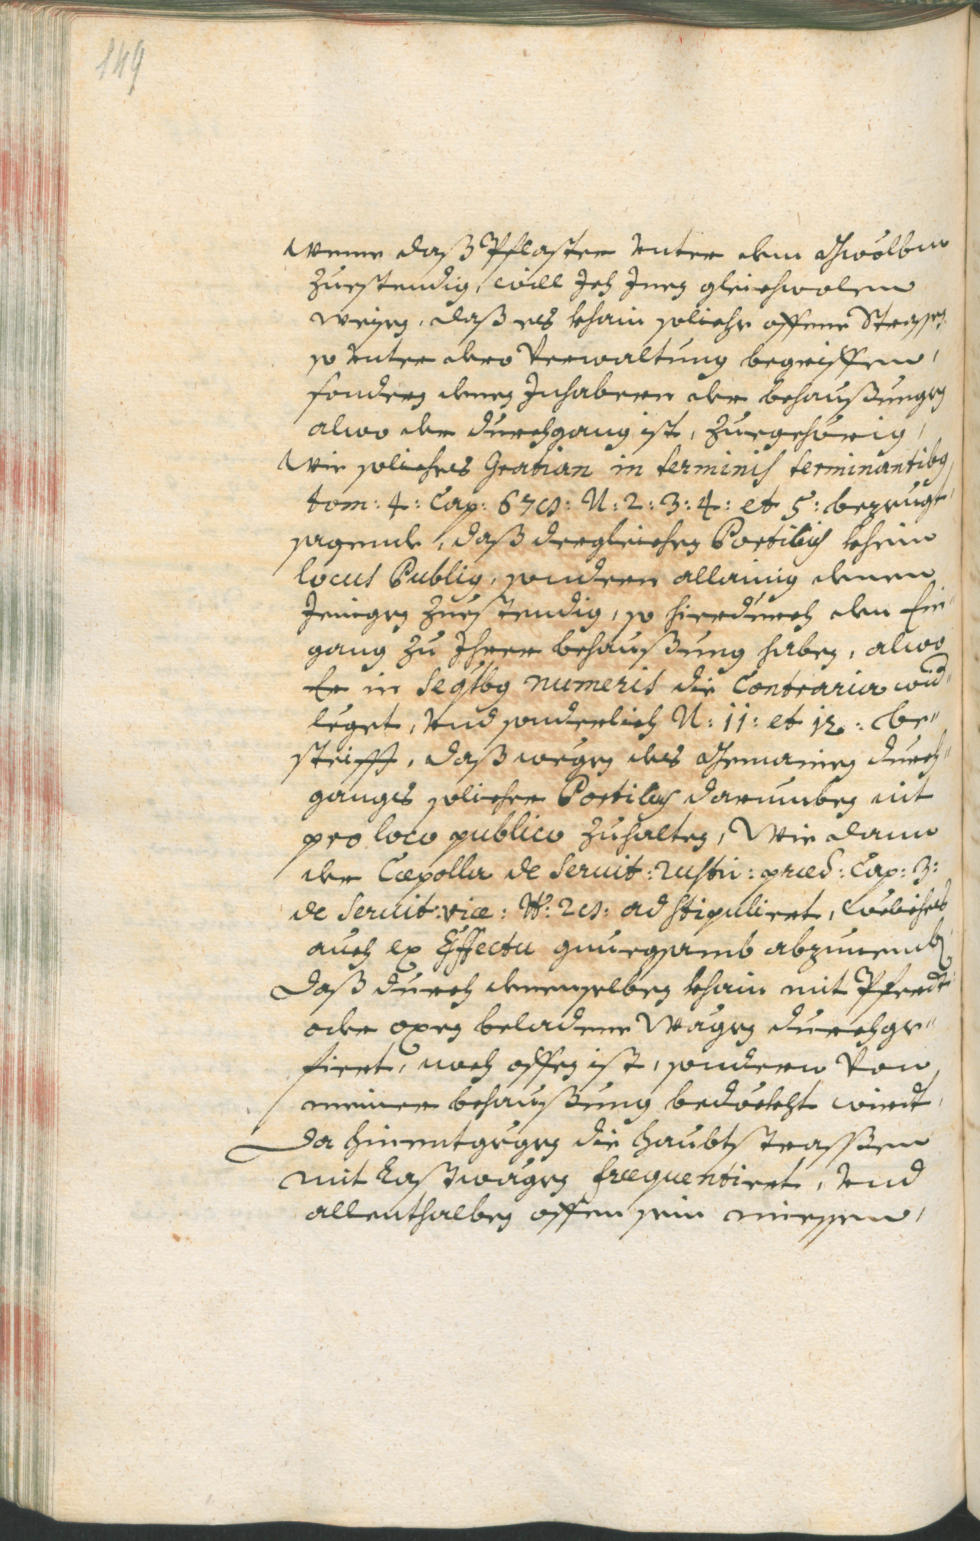 149
Wenne daß Pflaster Vnter dem Gwölben
Zuestendig, will Ich Ineg gleichwolen
weisen, daß es khain soliche offene Strassen
so Vnter dero Verwaltung begriffen,
sondern denen Inhabern der behaußungen
alwo der durchgang ist, Zuegehörig,
Wie soliches Gratian in terminis terminantibus
tom: 4: Cap: N: 2: 3: 4: et 5: bezeugt
sagende, daß dergleichen Porticus khein
locus Publicus, sondern allainig denen
Jenigen Zuestendig, so hierdurch den Ein-
gang zu Ihrer behaußung haben, alwo
Er in seqtbus numeris die Contraria wid-
leget, Vnd sonderlich N: 11: et 12: be=
steifft, daß wegen des Gemainen durch=
ganges solicher Porticus darumben nit
pro loco publico Zuhalten, Wie dann
der Cæpolla de Seruit: rusti: præd: Cap: 3:
de Seruit: viæ: adstipuliert, Weliches
auch ex Effectu genuegsamb abzunemben
Daß durch denenselben khain mit Pferdt
oder oxen beladener Wagen durchge=
fiert, noch offen ist, sondern Von
meiner behaußung bedöckht wirdt,
Da hinentgegen die Haubtstrassen
mit Lastwägen frequentiert, Vnd
allenthalben offen sein miessen,